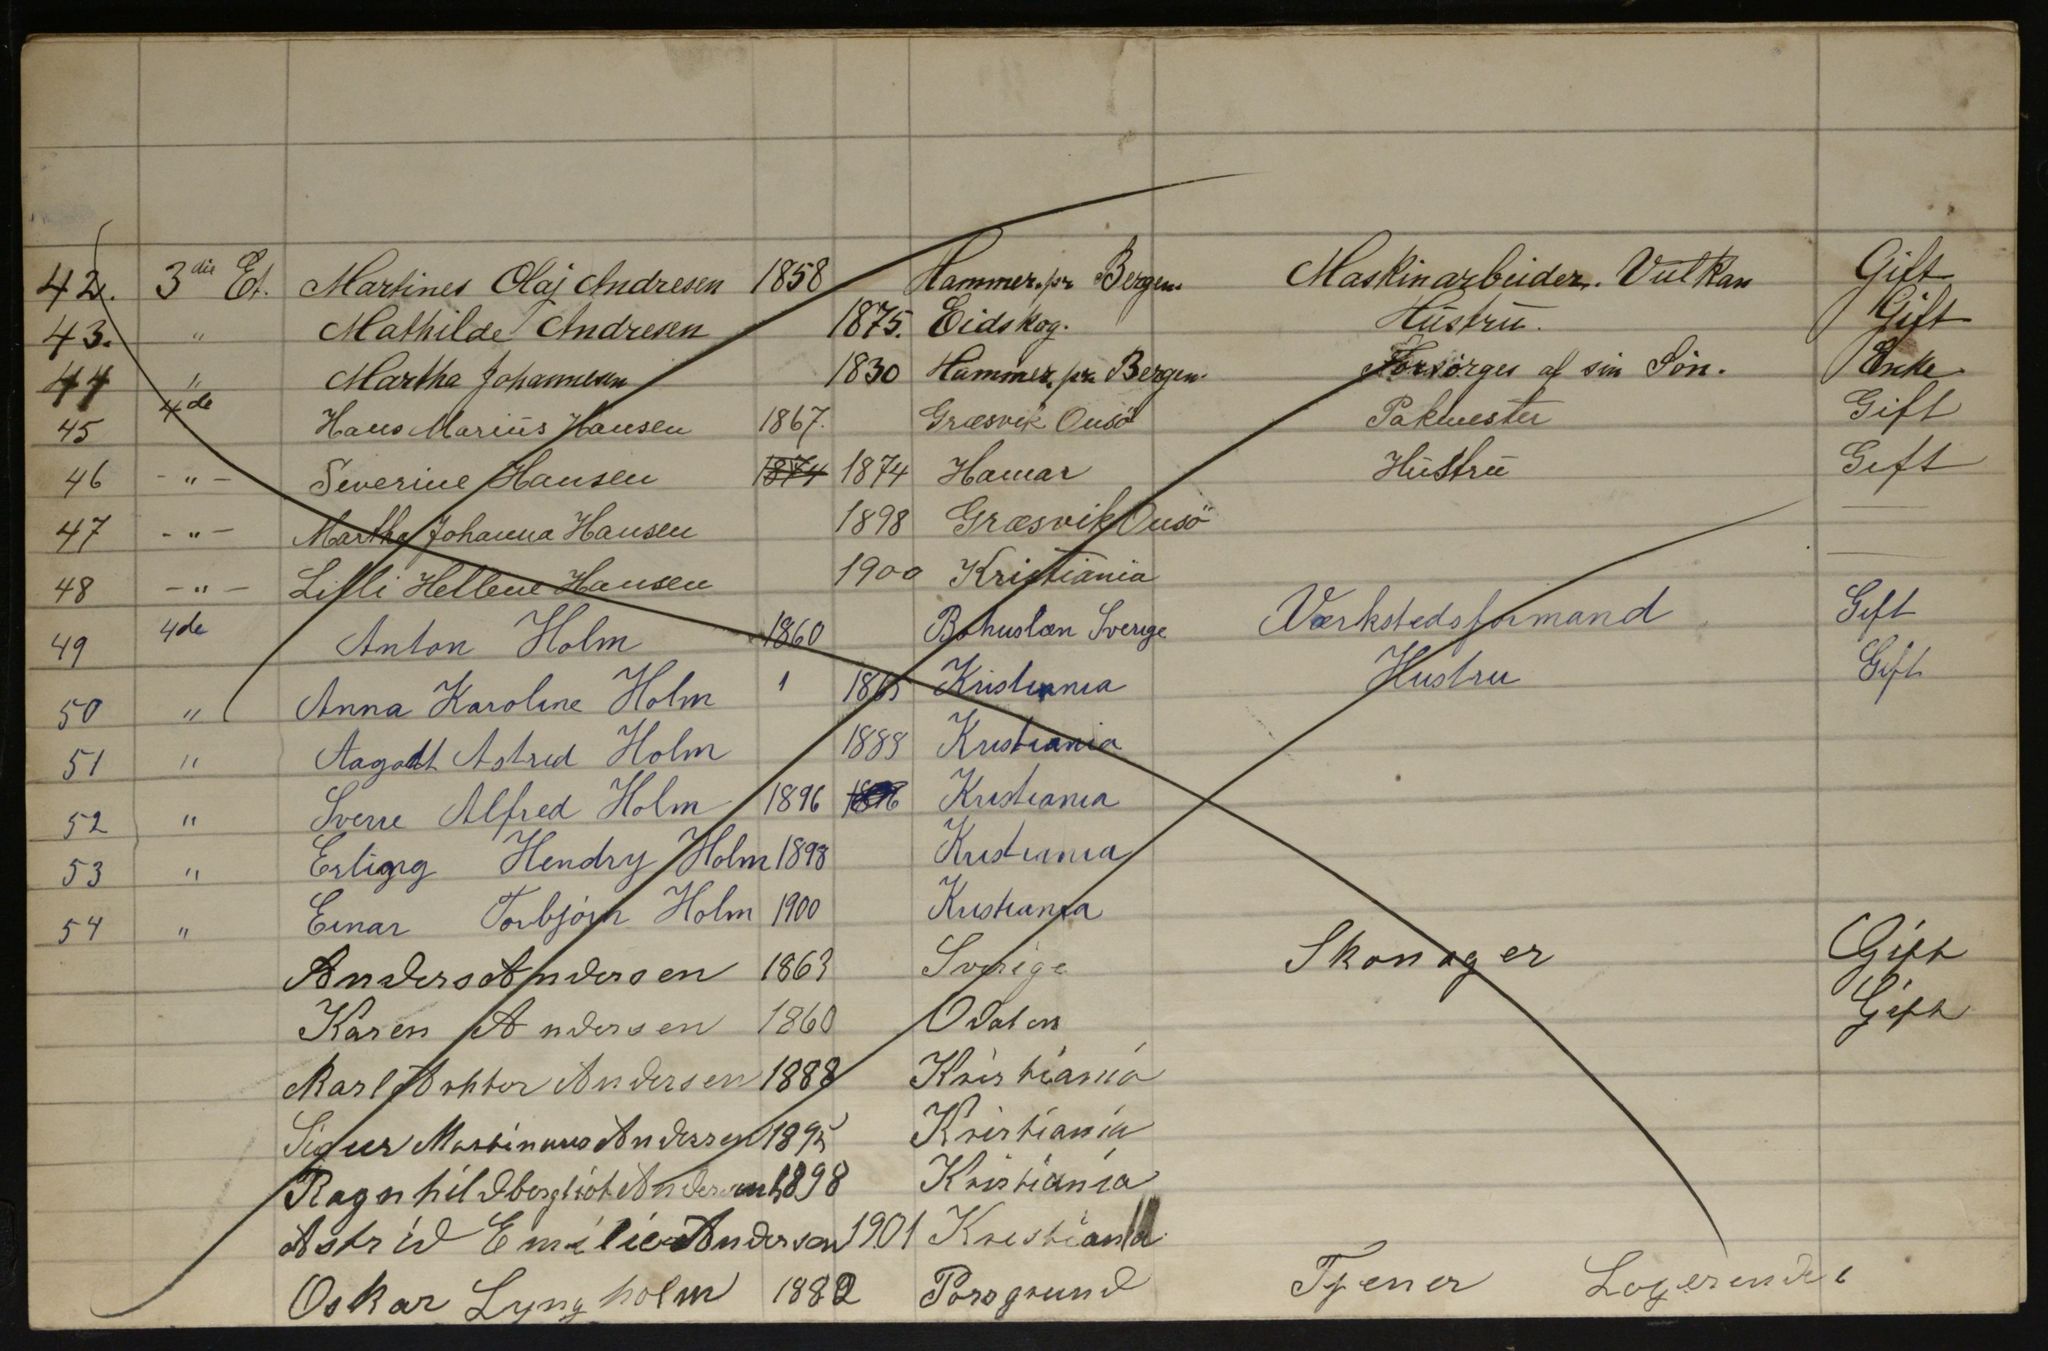 42. 3die Et. Martines Olaj Andresen 1858 Hammer. pr Bergen. Maskinarbeider. Vulkan Gift
43. " Mathilde Andresen 1875. Eidskog. Hustru. Gift
44 " Martha Johannesen 1830 Hammer. pr Bergen. Forsörges af sin Sön. Enke
45 4de Hans Marius Hansen 1867. Græsvik Onsö Pakmester Gift
46 - " - Severine Hansen 1874 1874 Hamar Hustru Gift
47 - " - Martha Johanna Hansen 1898 Græsvik Onsö —
48 - " - Lilli Hellene Hansen 1900 Kristiania —
49 4de Anton Holm 1860 Bohuslæn Sverige Værkstedsformand Gift
50 " Anna Karoline Holm 1865 Kristiania Hustru Gift
51 " Aagodt Astrid Holm 1889 Kristiania
52 " Sverre Alfred Holm 1896 1896 Kristiania
53 " Erling Hendry Holm 1898 Kristiania
54 " Einar Torbjörn Holm 1900 Kristiania
Anders Andersen 1863 Sverige Skomager Gift
Karen Andersen 1860 Odalen Gift
Karl Andersen 1888 Kristiania
Sigur Martinius Andersen 1895 Kristiania
Ragnhild bergliot Andersen 1898 Kristiania
Astrid Emilie Anderson 1901 Kristiania
Oskar Lyngholm 1882 Porsgrund Tjener Logerende